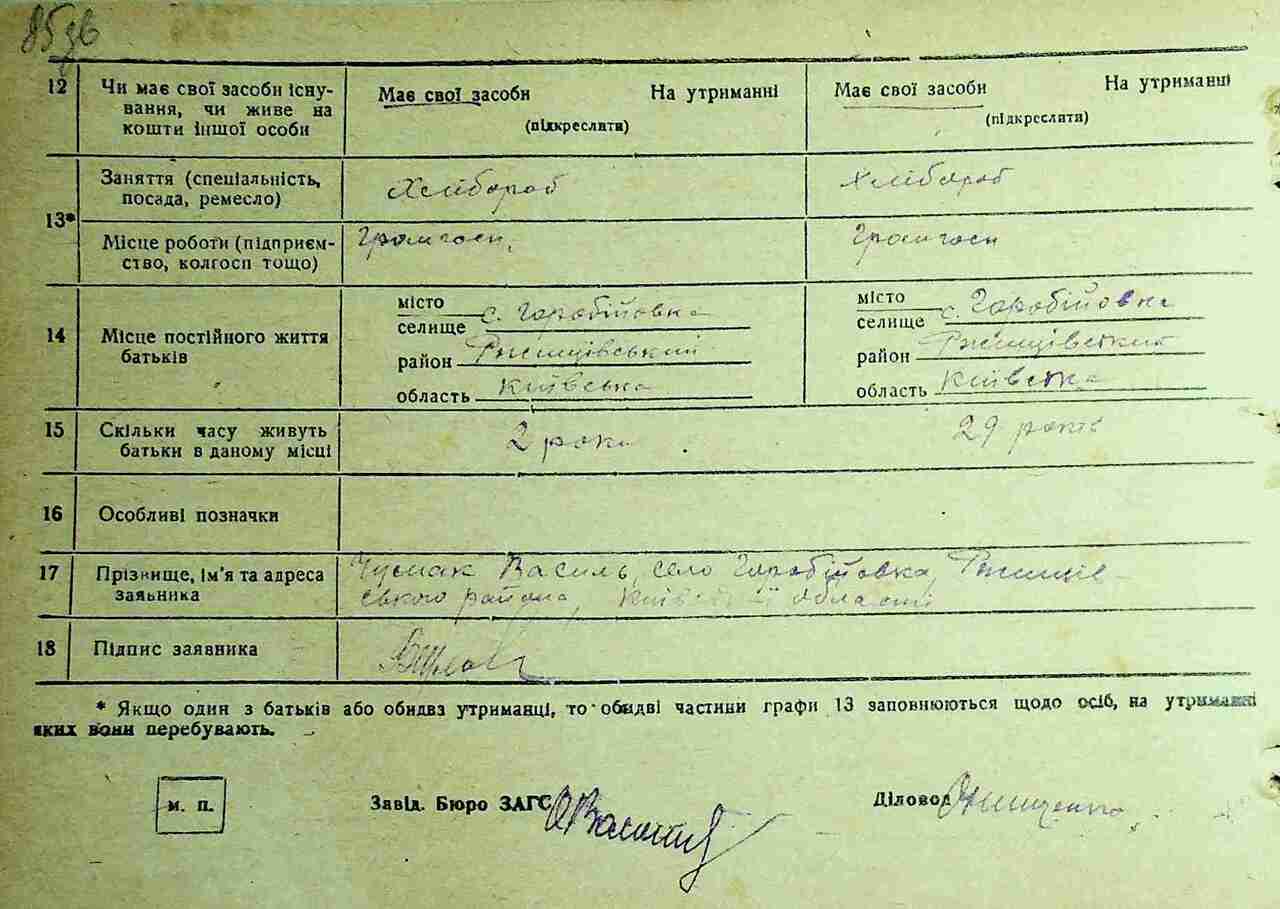 85зв
12 Чи має свої засоби існу- Має свої засоби На утриманні Має свої засоби На утриманні
вання, чи живе на (підкреслити) (підкреслити)
кошти іншої особи
13* Заняття (спеціальність, Хлібороб Хлібороб
посада, ремесло)
Місце роботи (підприєм- Громгосп, Громгосп
ство, колгосп тощо)
14 Місце постійного життя батьків місто місто
селище с. Горобійовка селище с. Горобійовка
район Ржищівський район Ржищівський
область Київська область Київська
15 Скільки часу живуть 2 роки 29 років
батьки в даному місці
16 Особливі позначки
17 Прізвище, ім'я та адреса Чумак Василь, село Горобійовка, Ржищів-
заявника ського района, Київської області
18 Підпис заявника
* Якщо один з батьків або обидва утриманці, то обидві частини графи 13 заповнюються щодо осіб, на утриманні
яких вони перебувають.
м. п. Завід. Бюро ЗАГС Діловод Онищенко